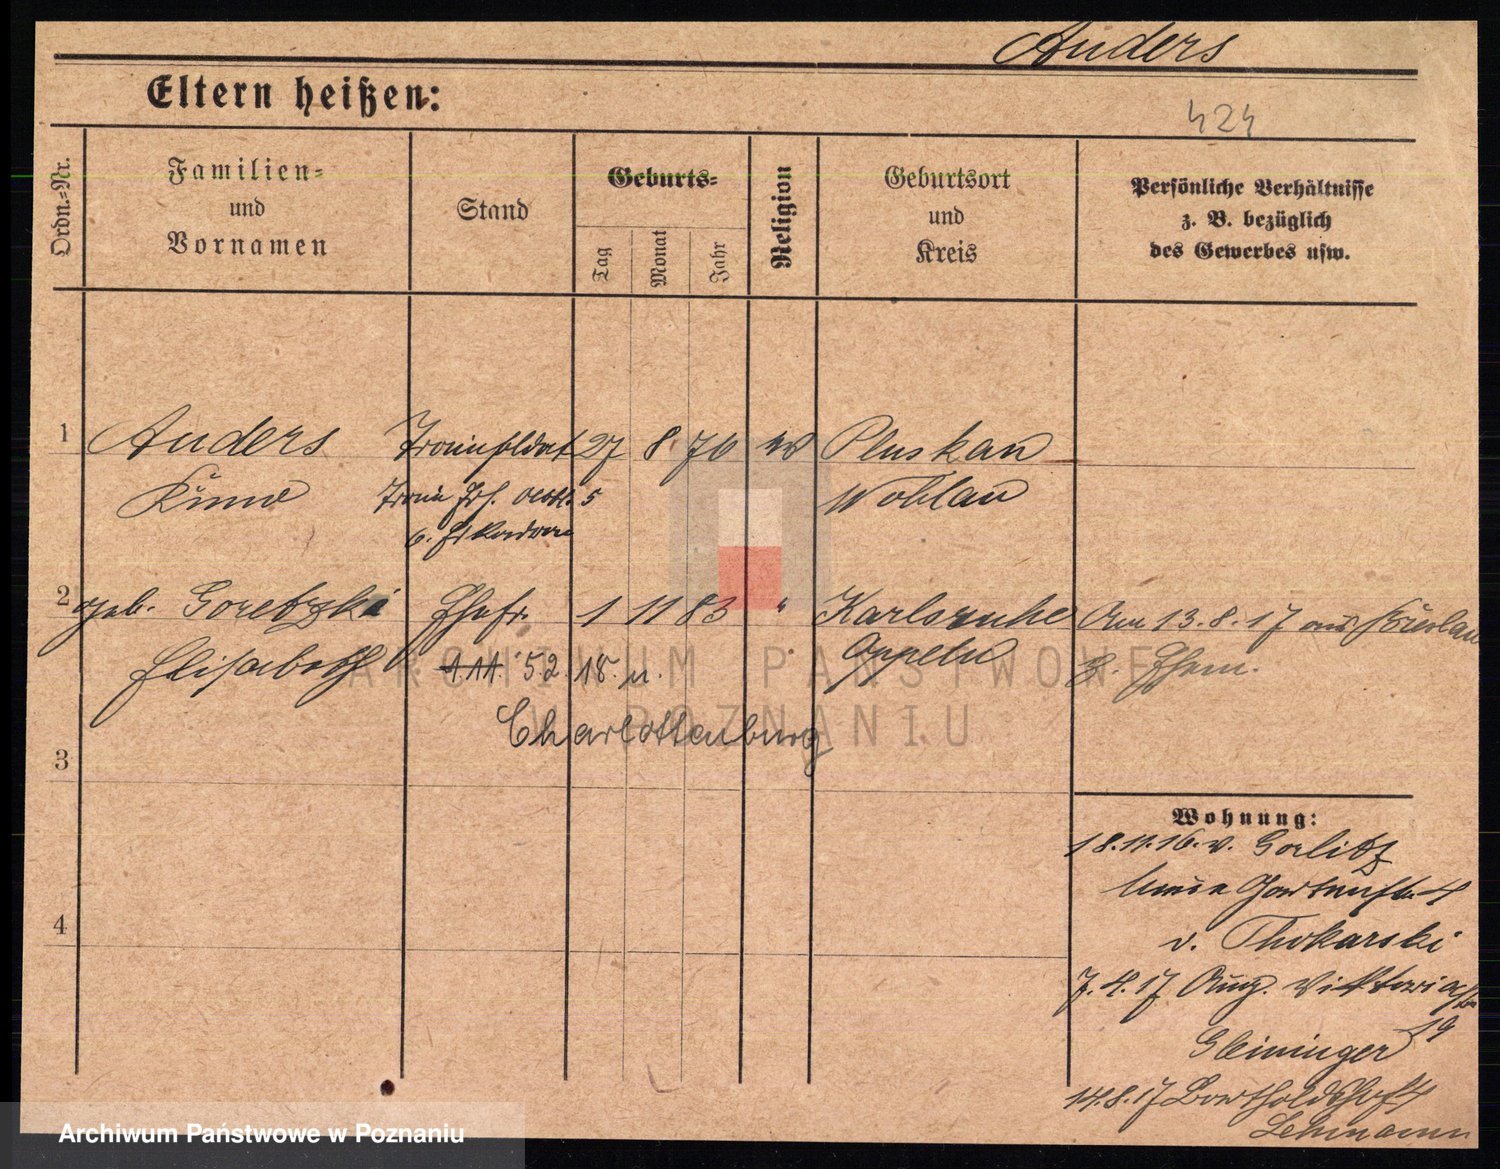 Anders
Eltern heißen:
424
Ordn.-Nr.
Familien-
und
Vornamen
Stand
Geburts-
Tag
Monat
Jahr
Religion
Geburtsort
und
Kreis
Persönliche Verhältnisse
z. B. bezüglich
des Gewerbes usw.
1 Anders Trainsoldat 27 8 76 Pluskau
Train 5 Wohlau
2 geb. Goretzki Ehefr. 1 11 83 " Karlsruhe Am 13.8.17 aus Breslau
Elisabeth 1.11. 52. 18. n. Oppeln z. Ehem.
Charlottenburg
3
4
Wohnung:
18.11.16. v. Görlitz
Neue Gartenstr. 4
v. Thokarski
7.4.17 Aug. Viktoriastr.
19
Gleininger
14.8.17 Bartholdshof 4
Lehmann
ARCHIWUM PAŃSTWOWE
W POZNANIU
Archiwum Państwowe w Poznaniu